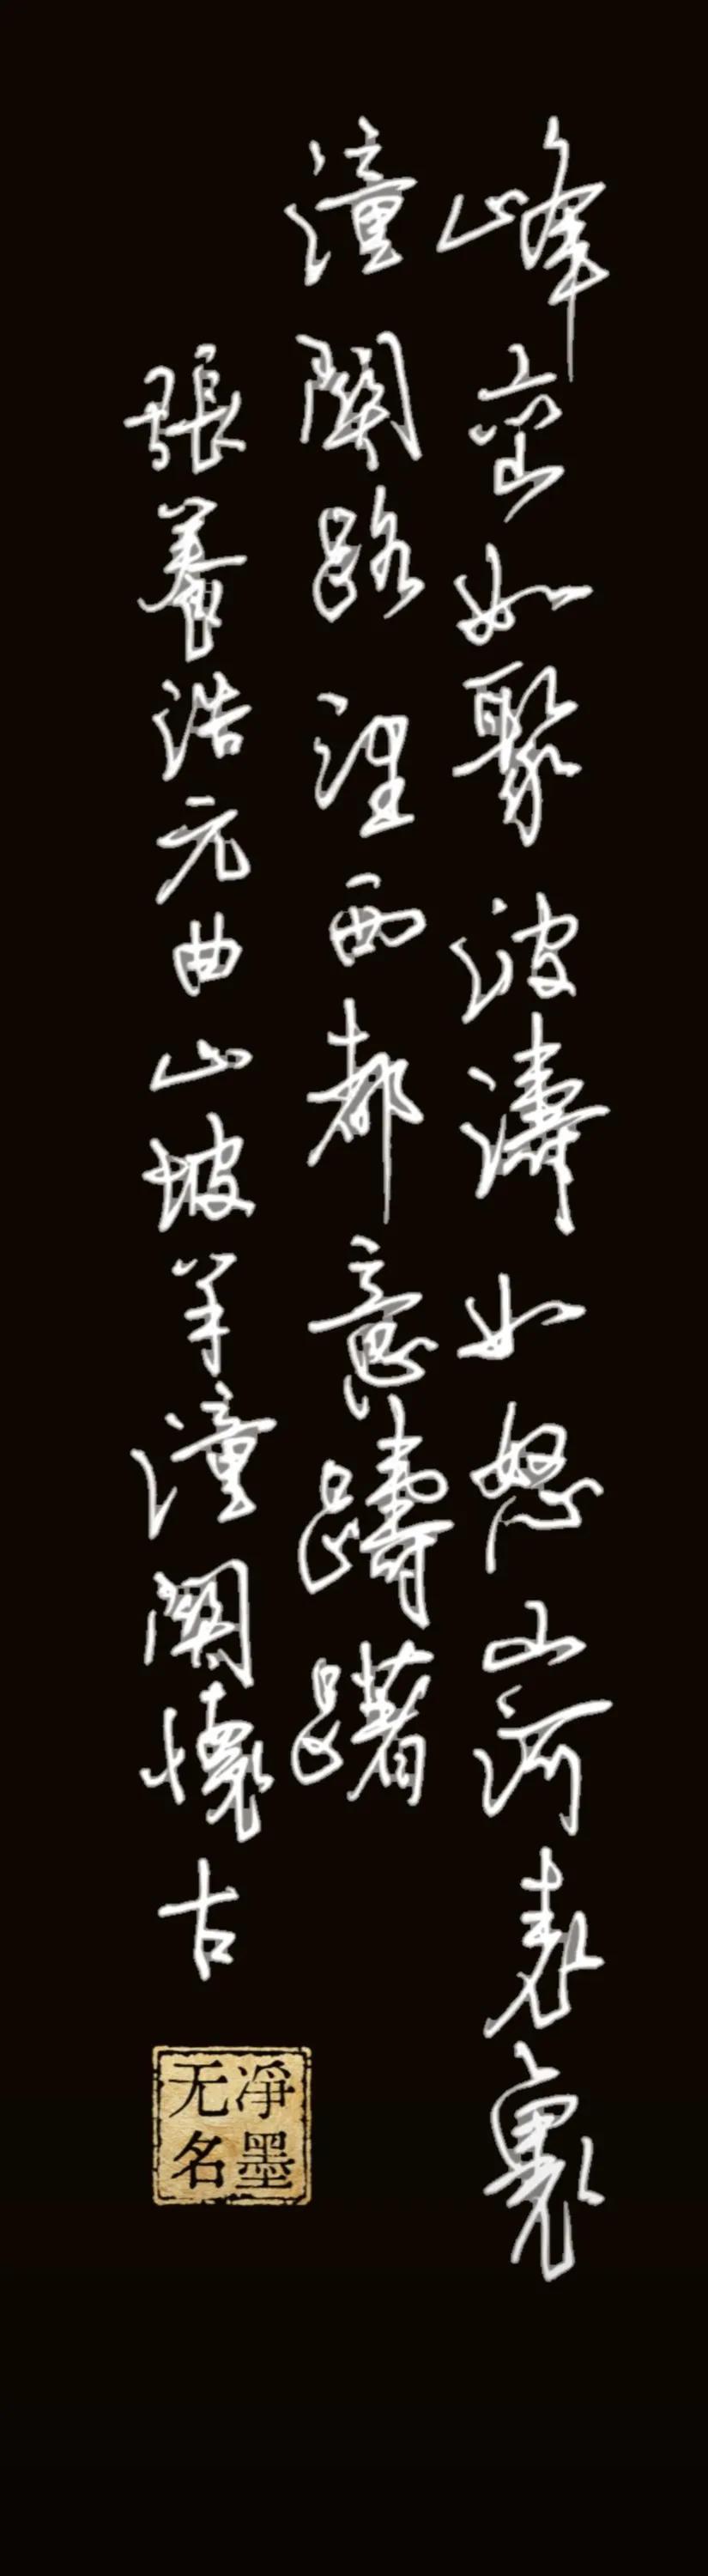 峰峦如聚波濤如怒山河表裏
潼關路望西都意躊躇
張養浩元曲山坡羊潼關懷古
凈墨
无名